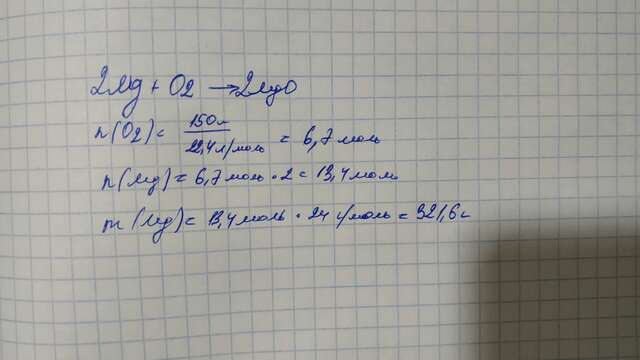 2Mg + O2 → 2MgO
n(O2) = 150л / 22,4 л/моль = 6,7 моль
n(Mg) = 6,7 моль · 2 = 13,4 моль
m(Mg) = 13,4 моль · 24 г/моль = 321,6 г